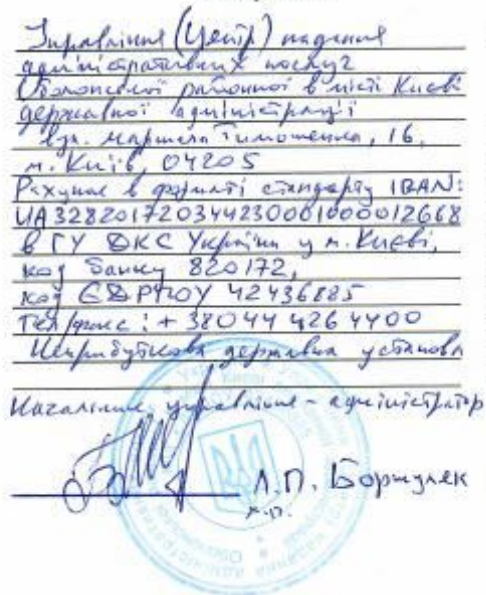 Управління (Центр) надання
адміністративних послуг
Оболонської районної в місті Києві
державної адміністрації
вул. Маршала Тимошенка, 16,
м. Київ, 04205
Рахунок в форматі стандарту IBAN:
UA328201720344230001000012668
в ГУ ДКС України у м. Києві,
код банку 820172,
код ЄДРПОУ 42436885
Тел/факс: +38044 426 4400
Неприбуткова державна установа
Начальник управління - адміністратор
Л.П.
м.п.